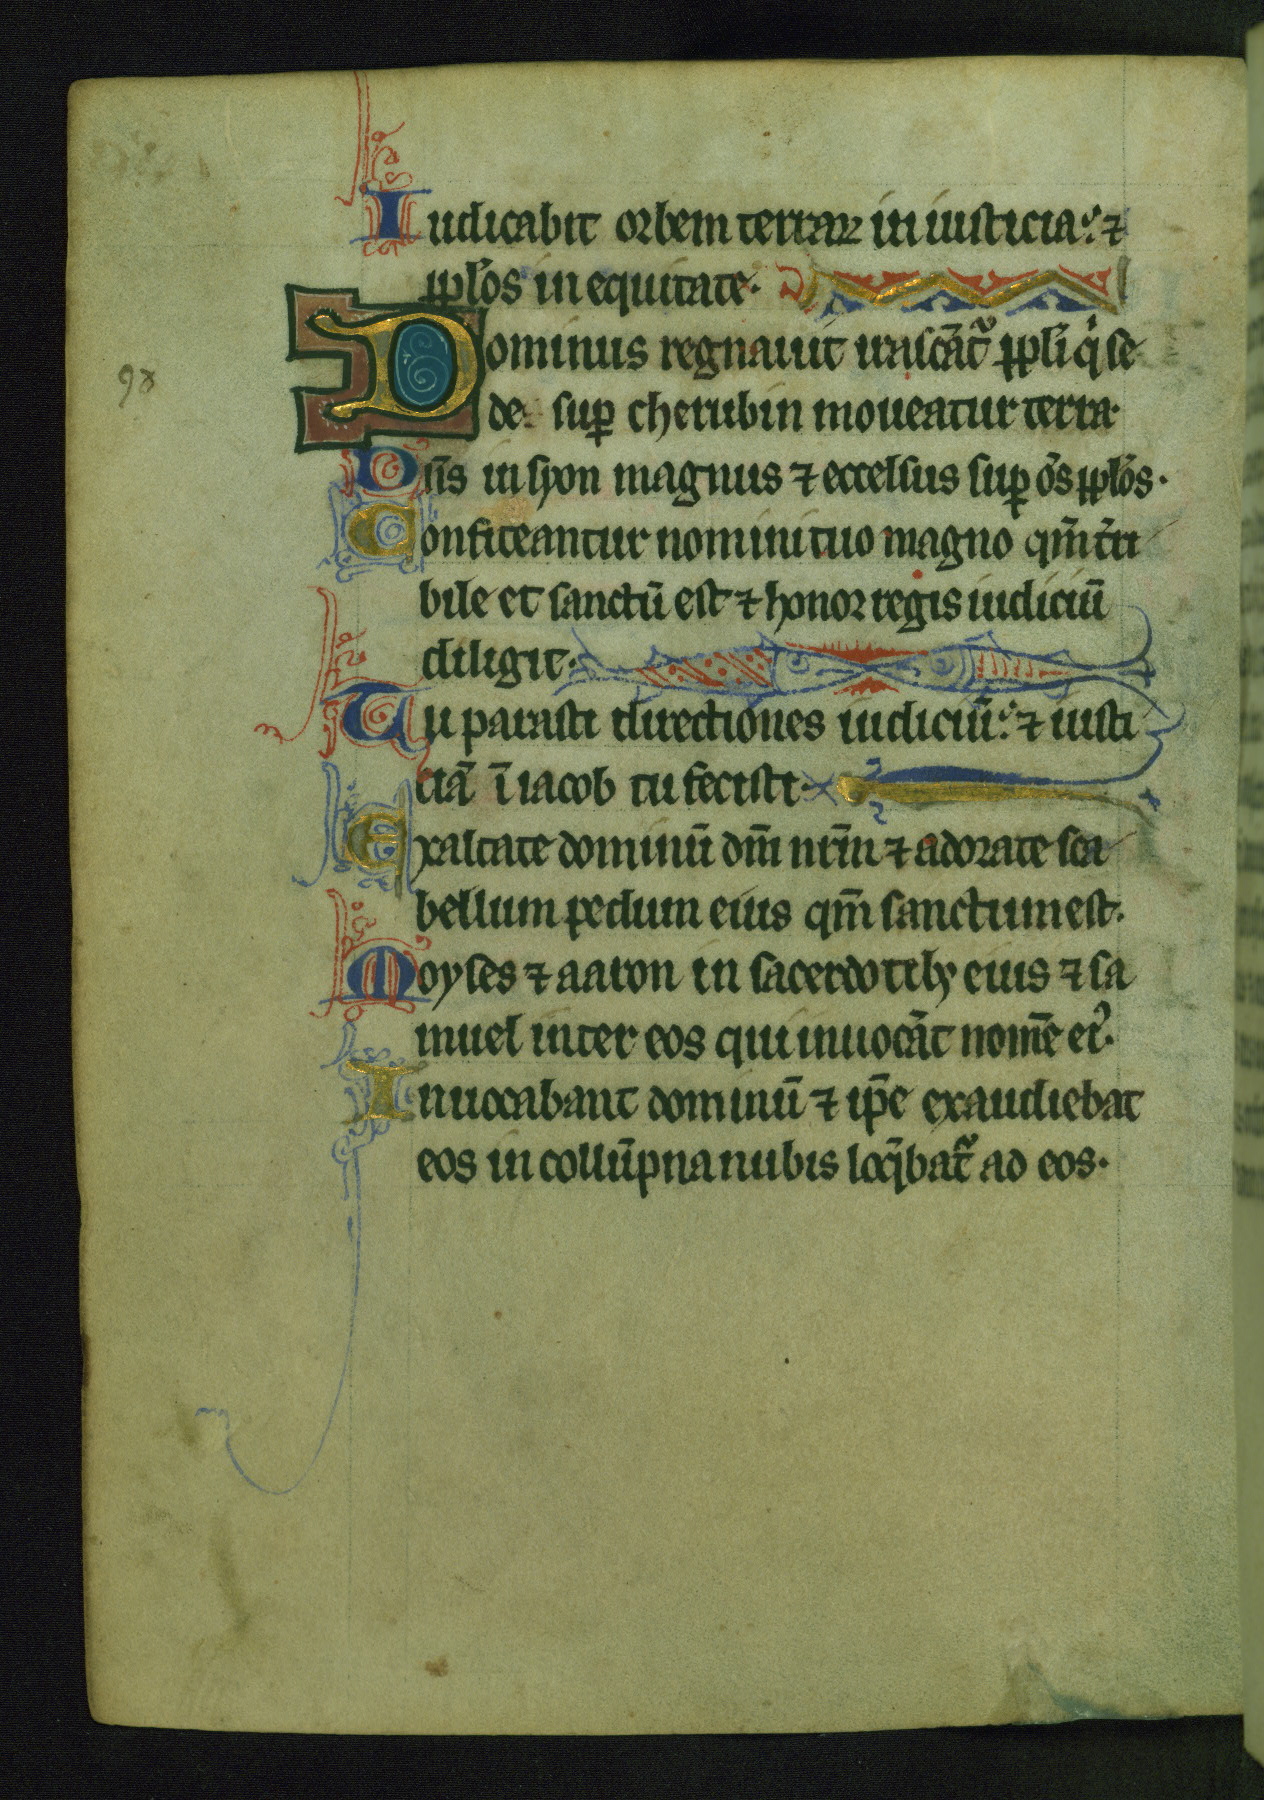 Iudicabit orbem terraꝝ in iusticia: ⁊
pplōs in equitate.
Dominus regnauit irascāt᷑ ppli qͥ se
98
de suꝑ cherubin moueatur terra.
Dn̄s in syon magnus ⁊ excelsus suꝑ om̄s pplōs.
Confiteantur nomini tuo magno qm̄ tri
bile et sanctū est ⁊ honor regis iudiciū
diligit.
Tu parasti directiones iudiciū: ⁊ iusti
ciā ī iacob tu fecisti.
Exaltate dominū dm̄ nrm̄ ⁊ adorate sca
bellum pedum eius qm̄ sanctum est.
Moyses ⁊ aaron in sacerdotibȝ eius ⁊ sa
muel inter eos qui inuocāt nomē eiꝰ.
Inuocabant dominū ⁊ ip̄e exaudiebat
eos in collūpna nubis loq̄bat᷑ ad eos.